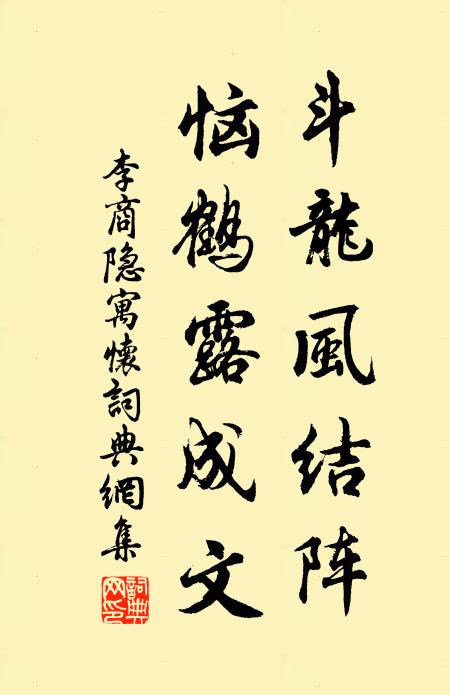 斗龍風结阵
恼鶴露成文
李商隐寓懷詞典網集
詞典
网印